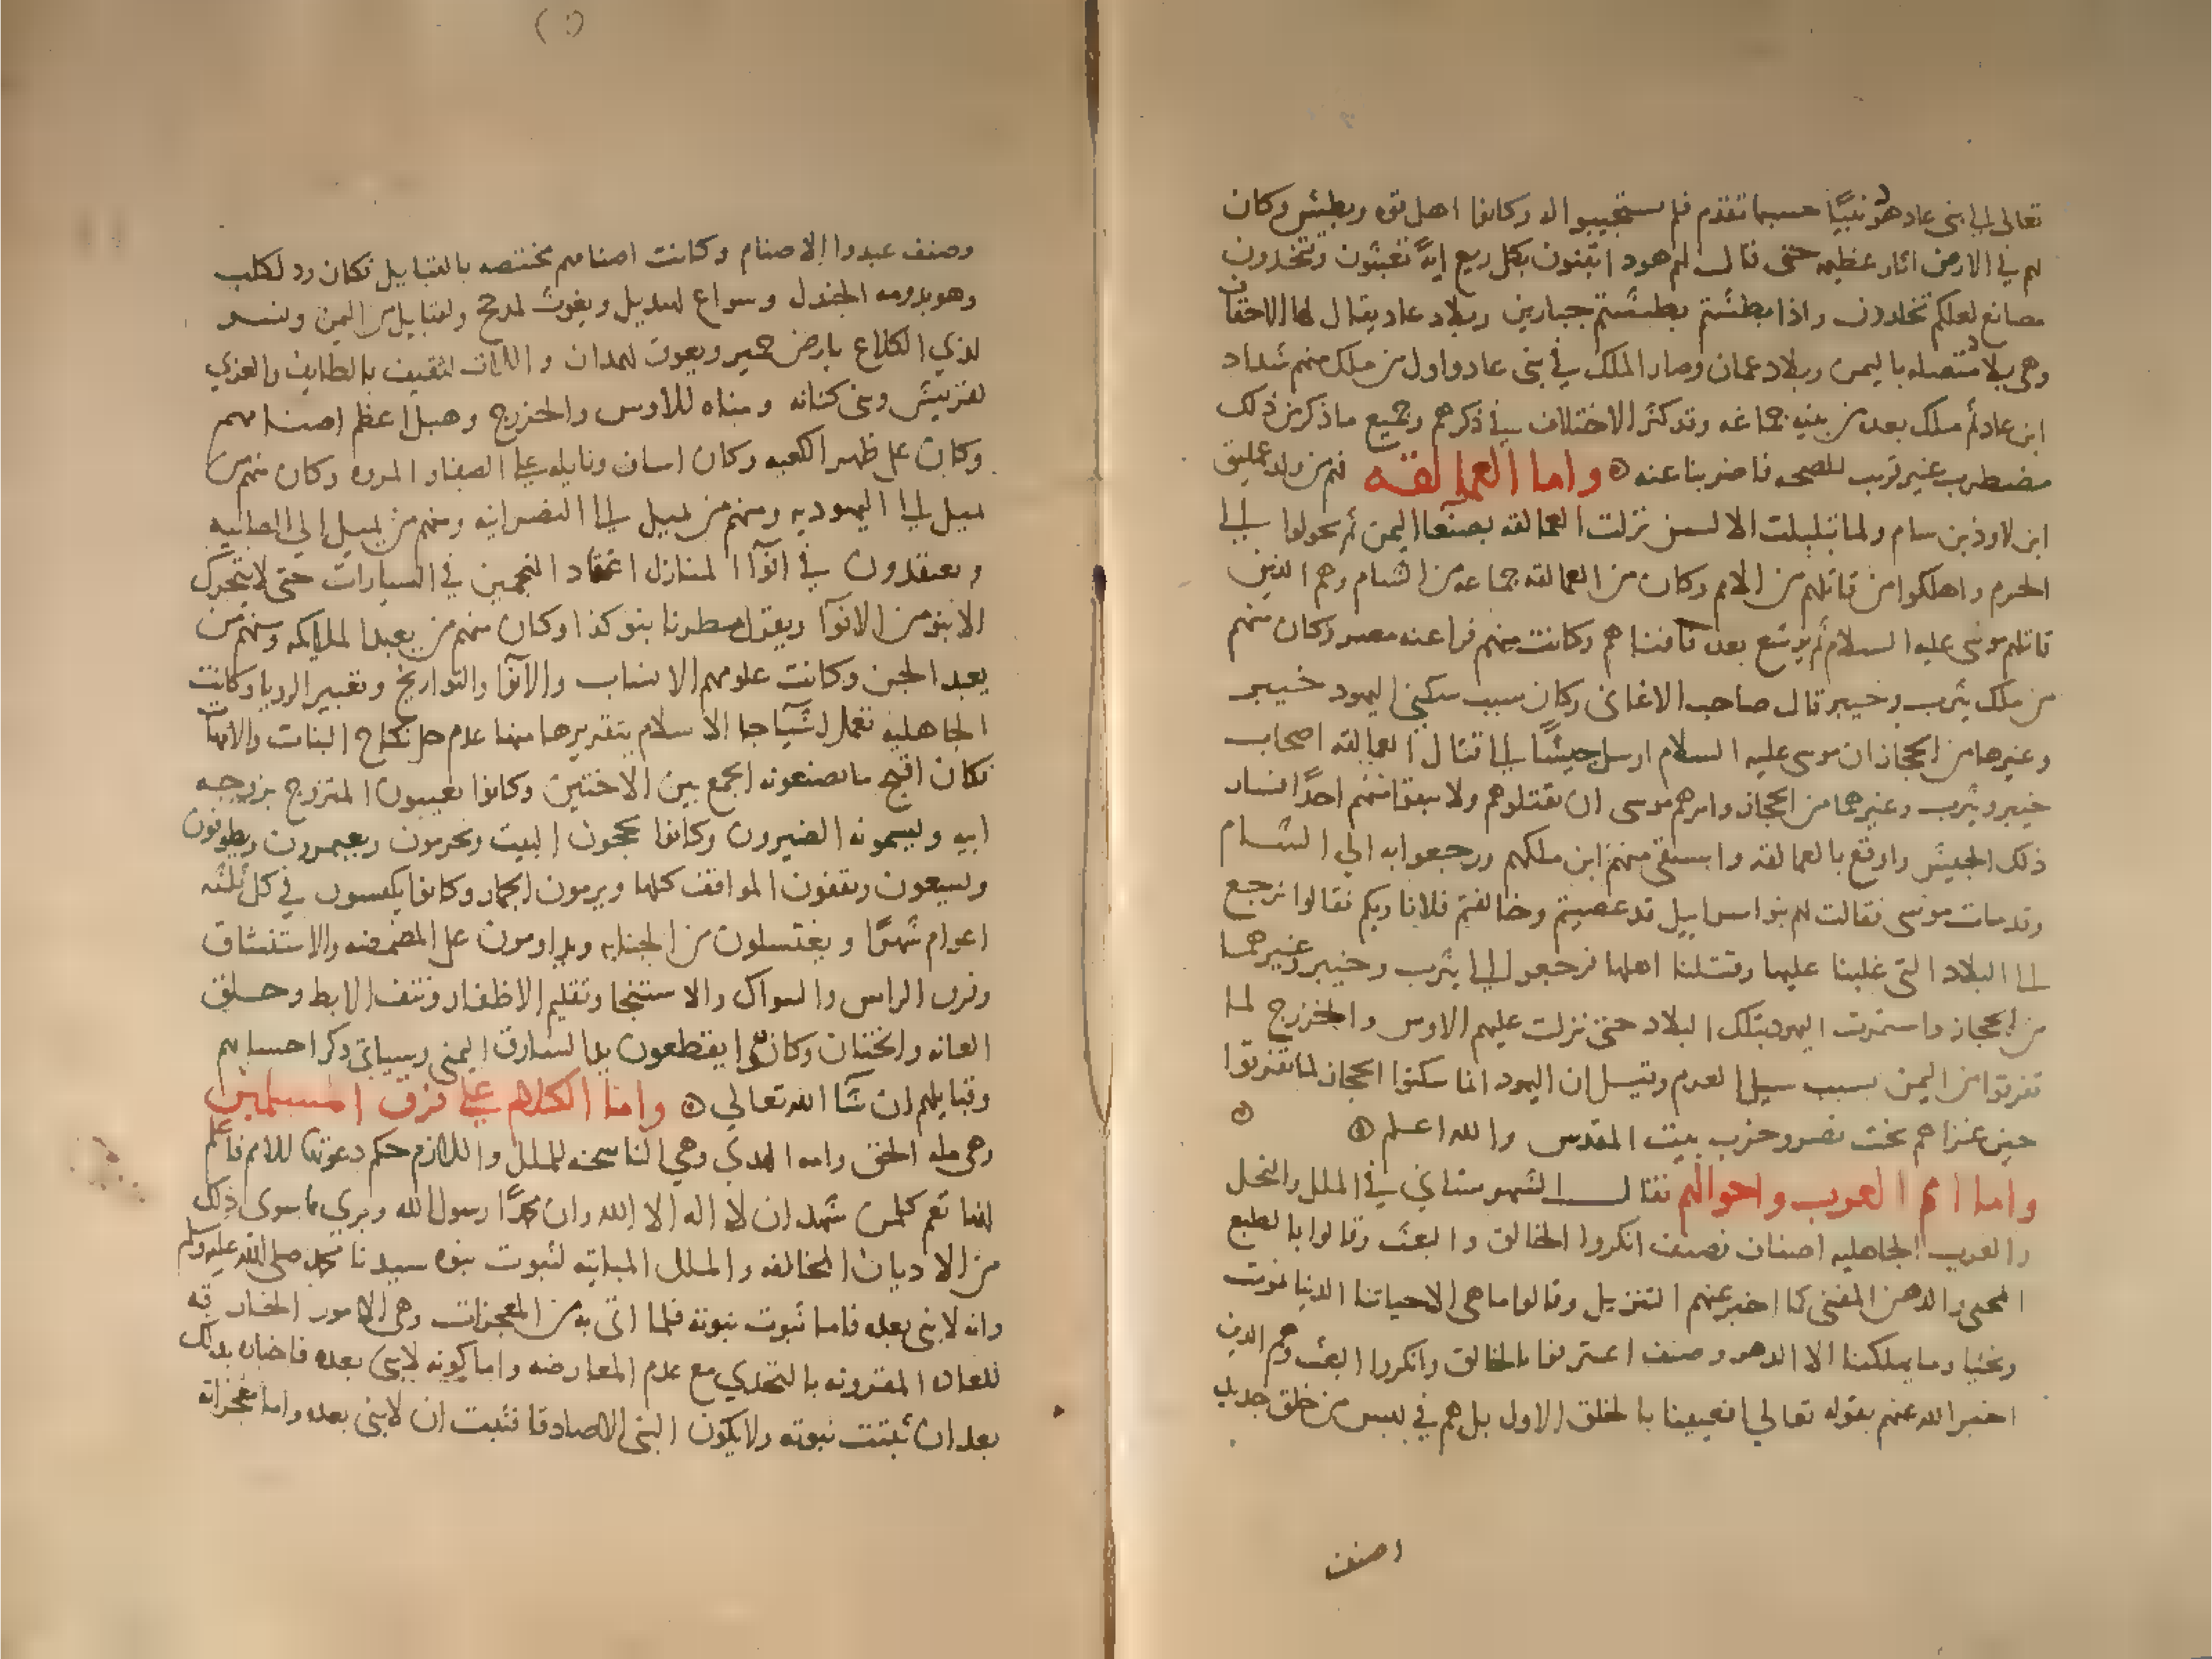 تعالى الى بنى عاد هودا نبيًا حسبما تقدم فلم يستجيبوا له وكانوا اهل قوه وبطش وكان
لهم في الارض اثار عظيمه حتى قال لهم هود اتبنون بكل ريع ايةً تعبثون وتتخذون
مصانع لعلكم تخلدون واذا بطشتم بطشتم جبارين وبلاد عاد يقال لها الاحقاف
وهى بلاد متصله باليمن وبلاد عمان وصار الملك في بنى عاد واول من ملك منهم شداد
ابن عاد ثم ملك بعده من بنيه جماعه وقد كثر الاختلاف في ذكرهم وجميع ما ذكر من ذلك
مضطرب غير قريب للصحه فاضربنا عنه واما العمالقه فهم من ولد عمليق
ابن لاوذ بن سام ولما تبلبلت الالسن نزلت العمالقه بصنعا اليمن ثم تحولوا الى
الحرم واهلكوا من قاتلهم من الامم وكان من العمالقه جماعه من الشام وهم الذين
قاتلهم موسى عليه السلام ثم يوشع بعده فافناهم وكانت منهم فراعنه مصر وكان منهم
من ملك يثرب وخيبر قال صاحب الاغانى وكان سبب سكنى اليهود خيبر
وغيرها من الحجاز ان موسى عليه السلام ارسل جيشًا الى قتال العمالقه اصحاب
خيبر ويثرب وغيرهما من الحجاز وامرهم موسى ان يقتلوهم ولا يبقوا منهم احدًا فسار
ذلك الجيش واوقع بالعمالقه واستبقى منهم ابن ملكهم ورجعوا به الي الشام
وقد مات موسى فقالت لهم بنو اسراييل قد عصيتم وخالفتم فلا ناويكم فقالوا نرجع
الى البلاد التى غلبنا عليها وقتلنا اهلها فرجعوا الى يثرب وخيبر وغيرهما
من الحجاز واستمرت اليهود بتلك البلاد حتى نزلت عليهم الاوس والخزرج لما
تفرقوا من اليمن بسبب سيل العرم وقيل ان اليهود انما سكنوا الحجاز لما تفرقوا
حين غزاهم بخت نصر وخرب بيت المقدس والله اعلم
واما امم العرب واحوالهم فقال الشهرستاني في الملل والنحل
والعرب الجاهليه اصناف فصنف انكروا الخالق والبعث وقالوا بالطبع
المحيى والدهر المفنى كما اخبر عنهم التنزيل وقالوا ما هى الا حياتنا الدنيا نموت
ونحيا وما يهلكنا الا الدهر وصنف اعترفوا بالخالق وانكروا البعث وهم الذين
اخبر الله عنهم بقوله تعالي افعيينا بالخلق الاول بل هم في لبس من خلق جديد
وصنف
وصنف عبدوا الاصنام وكانت اصنامهم مختصه بالقبايل فكان ود لكلب
وهو بدومه الجندل وسواع لهديل ويغوث لمدحج ولقبايل من اليمن ونسر
لذي الكلاع بارض حمير ويعوق لهمدان واللات لثقيف بالطايف والعزي
لقريش وبنى كنانه ومناه للاوس والخزرج وهبل اعظم اصنامهم
وكان على ظهر الكعبه وكان اساف ونايله على الصفا والمروه وكان منهم من
يميل الى اليهوديه ومنهم من يميل الى النصرانيه ومنهم من يميل الي الصابيه
ويعتقدون في انوآ المنازل اعتقاد المنجمين في السيارات حتى لا يتحرك
الا بنو من الانوآ ويقول مطرنا بنو كذا وكان منهم من يعبد الملايكه ومنهم من
يعبد الجن وكانت علومهم الانساب والانوآ والتواريخ وتعبير الرويا وكانت
الجاهليه تفعل اشيآ جا الاسلام بتقريرها منها عدم حل نكاح البنات والامهات
فكان اقبح ما يصنعونه الجمع بين الاختين وكانوا يعيبون المتزوج بزوجه
ابيه ويسمونه الضيزن وكانوا يحجون البيت ويحرمون ويعتمرون ويطوفون
ويسعون ويقفون المواقف كلها ويرمون الجمار وكانوا يكبسون في كل ثلثه
اعوام شهرًا ويغتسلون من الجنابه ويداومون على المضمضه والاستنشاق
وفرق الراس والسواك والاستنجا وتقليم الاظفار ونتف الابط وحلق
العانه والختان وكانوا يقطعون يد السارق اليمنى وسياتى ذكر احسابهم
وقبايلهم ان شآ الله تعالي واما الكلام على فرق المسلمين
وهى مله الحق وامه الهدي وهي الناسخه للملل واللازم حكم دعوتها للامم فاعلم
انها تعم كلمن شهد ان لا اله الا الله وان محمدًا رسول الله وبري مما سوى ذلك
من الاديان المخالفه والملل المباينه لثبوت نبوه سيدنا محمد صلى الله عليه وسلم
وانه لا نبى بعده فاما ثبوت نبوته فلما اتى به من المعجزات وهى الامور الخارقه
للعاده المقرونه بالتحدي مع عدم المعارضه واما كونه لا نبى بعده فاخباره بذلك
بعد ان ثبتت نبوته ولا يكون النبى الا صادقا فثبت ان لا نبى بعده واما معجزاته